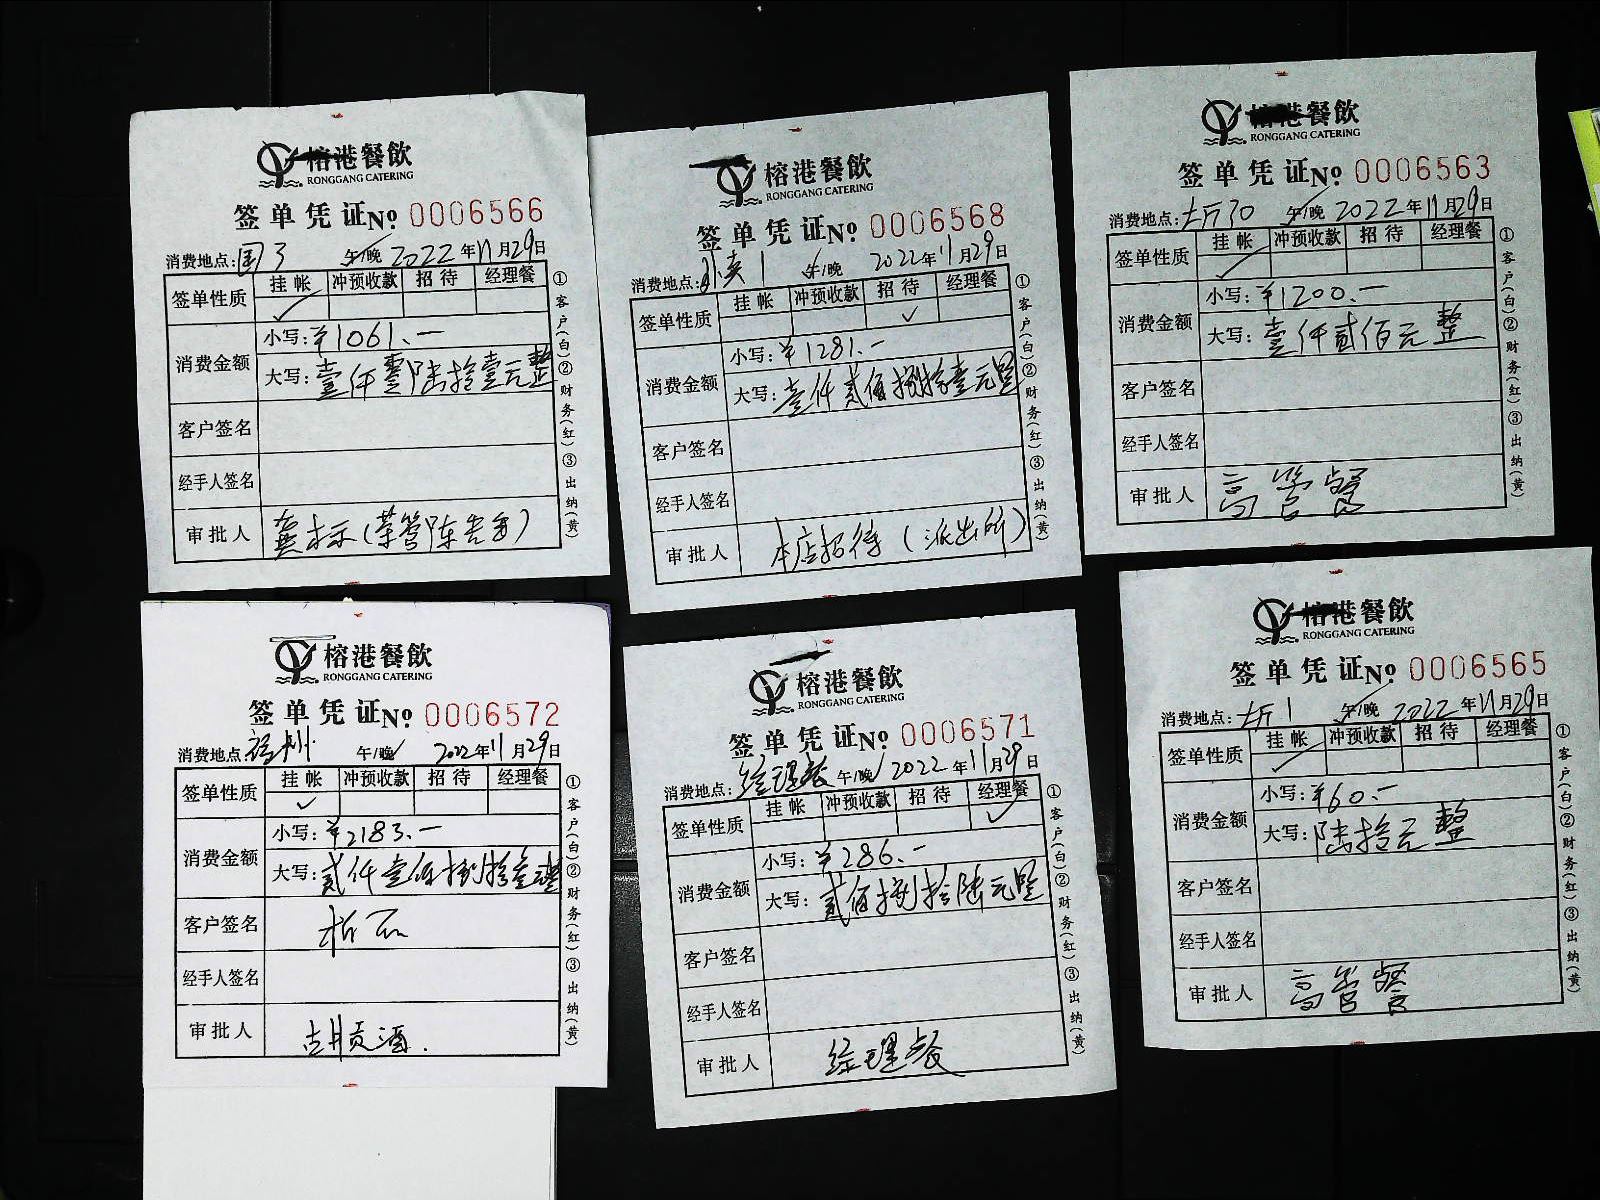 榕港餐飲
RONGGANG CATERING
签单凭证No 0006566
消费地点: 国3 午/晚 2022年11月29日
签单性质 挂帐 冲预收款 招待 经理餐
✓
消费金额 小写:¥1061.—
大写:壹仟零陆拾壹元整
客户签名
经手人签名
审批人
①客户(白)②财务(红)③出纳(黄)
榕港餐飲
RONGGANG CATERING
签单凭证No 0006568
消费地点: 1 午/晚 2022年11月29日
签单性质 挂帐 冲预收款 招待 经理餐
✓
消费金额 小写:¥1281.—
大写:壹仟贰佰捌拾壹元整
客户签名
经手人签名
审批人 本店招待(派出所)
①客户(白)②财务(红)③出纳(黄)
榕港餐飲
RONGGANG CATERING
签单凭证No 0006563
消费地点: 大厅30 午/晚 2022年11月29日
签单性质 挂帐 冲预收款 招待 经理餐
✓
消费金额 小写:¥1200.—
大写:壹仟贰佰元整
客户签名
经手人签名
审批人 高管餐
①客户(白)②财务(红)③出纳(黄)
榕港餐飲
RONGGANG CATERING
签单凭证No 0006572
消费地点: 福州 午/晚 2022年11月29日
签单性质 挂帐 冲预收款 招待 经理餐
✓
消费金额 小写:¥2183.—
大写:贰仟壹佰捌拾叁元整
客户签名
经手人签名
审批人
①客户(白)②财务(红)③出纳(黄)
榕港餐飲
RONGGANG CATERING
签单凭证No 0006571
消费地点: 经理餐 午/晚 2022年11月29日
签单性质 挂帐 冲预收款 招待 经理餐
✓
消费金额 小写:¥286.—
大写:贰佰捌拾陆元整
客户签名
经手人签名
审批人 经理餐
①客户(白)②财务(红)③出纳(黄)
榕港餐飲
RONGGANG CATERING
签单凭证No 0006565
消费地点: 大厅1 午/晚 2022年11月29日
签单性质 挂帐 冲预收款 招待 经理餐
✓
消费金额 小写:¥60.—
大写:陆拾元整
客户签名
经手人签名
审批人 高管餐
①客户(白)②财务(红)③出纳(黄)